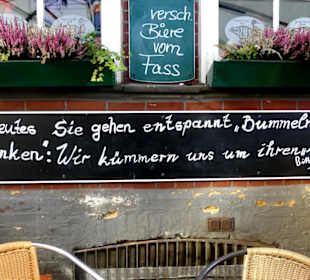 versch.
Biere
vom
Fass
eutes Sie gehen entspannt „Bummeln
nken": Wir kümmern uns um ihren